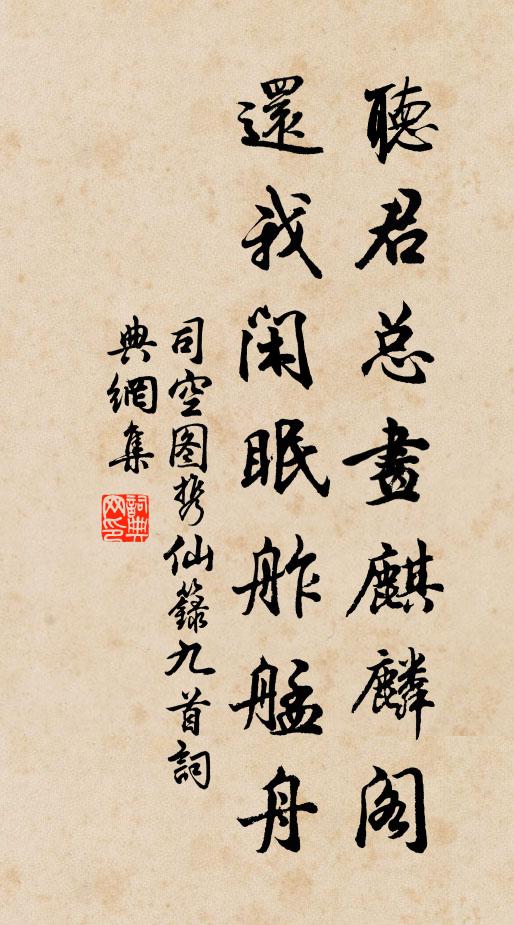 聽君总畫麒麟阁
還我閑眠舴艋舟
司空图携仙籙九首詞
典網集
詞典
网印